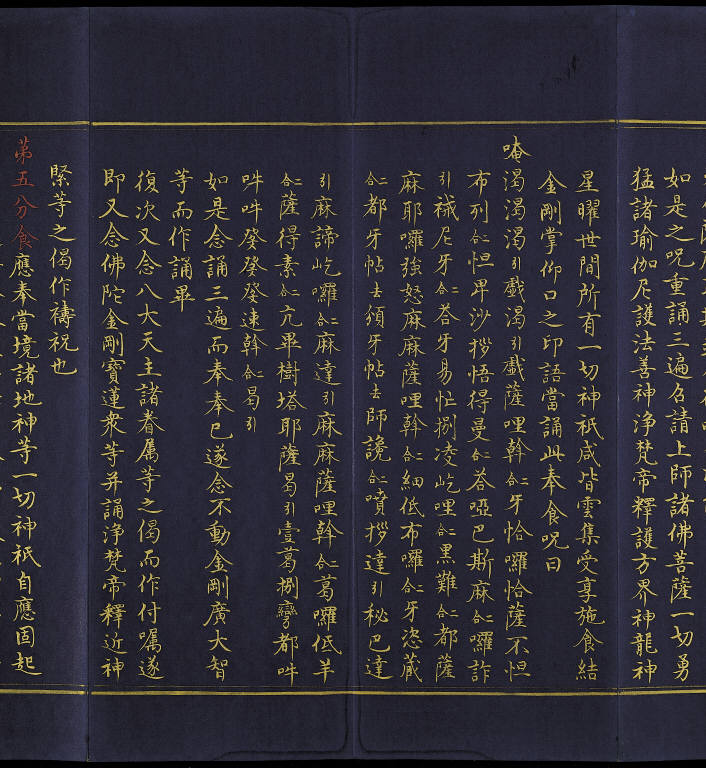 如是之呪重誦三遍召請上師諸佛菩薩一切勇
猛諸瑜伽尼護法善神淨梵帝釋護方界神龍神
星曜世間所有一切神祇咸皆雲集受享施食結
金剛掌仰口之印語當誦此奉食呪曰
唵渴渴渴引戲渴引戲薩哩斡二合牙恰囉恰薩不怛
布列二合怛毘沙拶悟得曼二合荅啞巴斯麻二合囉詐
引襪尼牙二合荅牙易忙捌凌屹哩二合黑難二合都薩
麻耶囉強怒麻麻薩哩斡二合細低布囉二合牙恣葳
二合都牙帖去須牙帖去師讒二合噴拶達引秘巴達
引麻諦屹囉二合麻達引麻麻薩哩斡二合葛囉低羊
二合薩得素二合亢畢樹塔耶薩曷引壹葛捌都吽
吽吽癹癹癹速斡二合曷引
如是念誦三遍而奉奉已遂念不動金剛廣大智
等而作誦畢
復次又念八大天主諸眷属等之偈而作付囑遂
即又念佛陀金剛寶蓮衆等并誦淨梵帝釋近神
緊等之偈作禱祝也
第五分食應奉當境諸地神等一切神祇自應固起